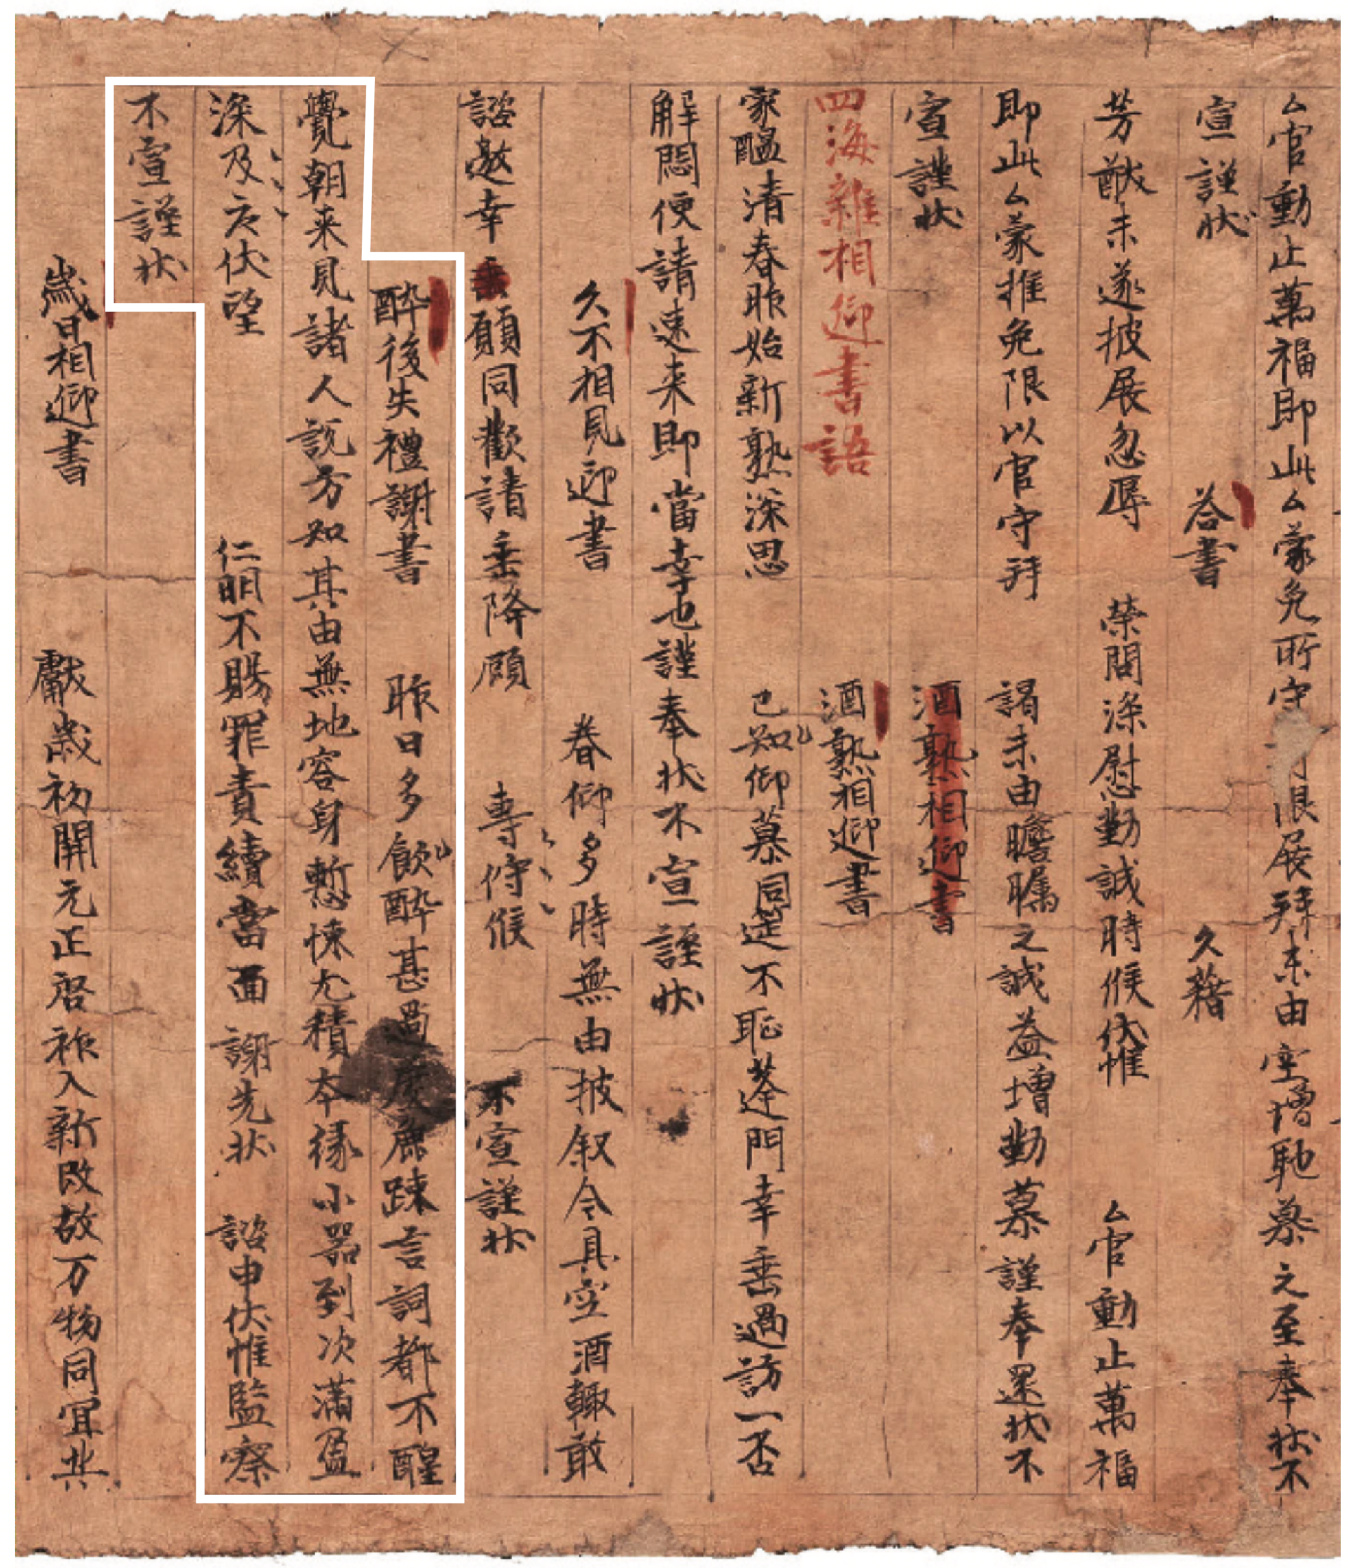 厶官動止萬福即此厶蒙免所守有限展拜未由空增馳慕之至奉状不
宣謹状 答書 久藉
芳猷未遂披展忽辱 榮問深慰勤誠時候伏惟 厶官動止萬福
即此厶蒙推免限以官守拜 謁未由瞻矚之誠益增勤慕謹奉還状不
宣謹状 酒熟相迎書
四海雜相迎書語 酒熟相迎書
家醖清春昨始新熟深思 已知仰慕同筵不恥蓬門幸垂過訪一否
解悶便請速来即當幸也謹奉状不宣謹状
久不相見迎書 眷仰多時無由披叙今具空酒輙敢
諮邀幸垂願同歡請垂降顧 專佇候 不宣謹状
酔後失禮謝書 昨日多飲酔甚過度麁踈言詞都不醒
覺朝来見諸人説方知其由無地容身慙悚尤積本緣小器到次滿盈
深及㡯伏望 仁明不賜罪責續當面謝先状 諮申伏惟監察
不宣謹状
歲日相迎書 獻歲初開元正啓祚入新改故万物同宜共